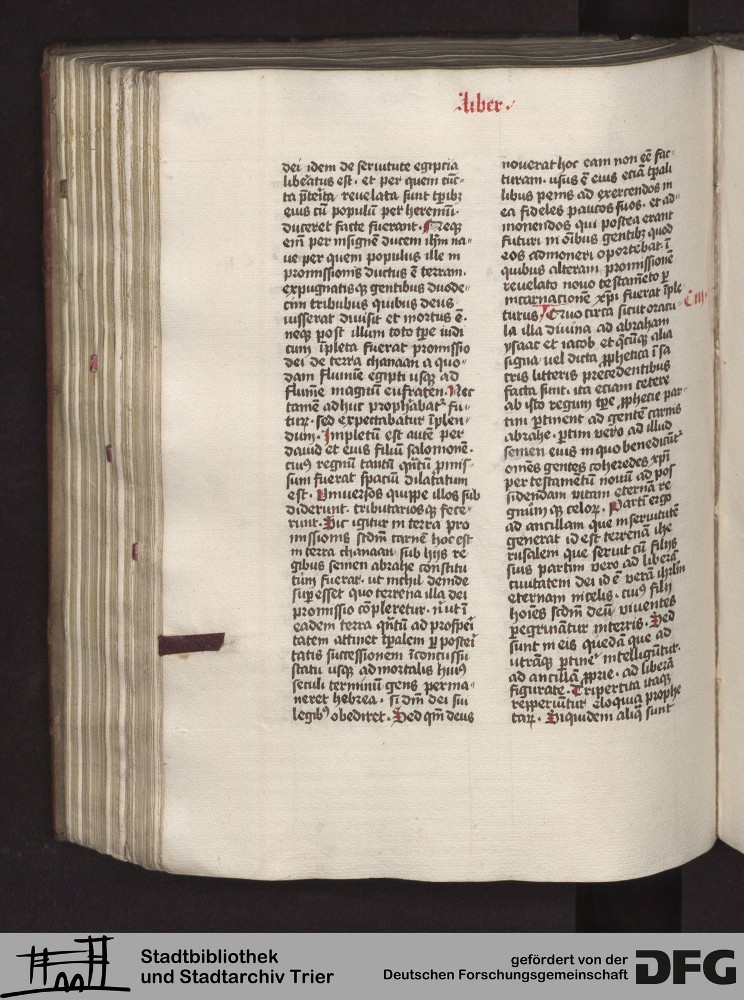 Liber
dei idem de seruitute egiptia
liberatus est · et per quem cūc
ta p̄terita reuelata sunt tꝑibꝫ
eius cū populū per heremū
duceret facte fuerant · Neqꝫ
em̄ per insignē ducem ih̄m na
ue per quem populus ille in
promissionis ductus ē terram ·
expugnatisqꝫ gentibus duode
cim tribubus quibus deus
iusserat diuisit et mortuus ē ·
neqꝫ post illum toto tꝑe iudi
cum īpleta fuerat promissio
dei de terra chanaan a quo
dam flumīe egipti usqꝫ ad
flumīe magnū eufraten · Nec
tamē adhuc prophabat᷑ fu
turꝝ · sed expectabatur īplen
dum · Impletū est autē per
dauid et eius filiū salomonē ·
cuiꝰ regnū tantū qn̄tū ꝓmis
sum fuerat spaciū dilatatum
est · Vniuersos quippe illos sub
diderunt · tributariosqꝫ fece
runt · Sic igitur in terra pro
missionis scd̄m carnē hoc est
in terra chanaan sub hijs re
gibus semen abrahe constitu
tūm fuerat · ut nichil deinde
suꝑesset quo terrena illa dei
promissio cōpleretur · n̄ ut ī
eadem terra qn̄tū ad prosperi
tatem attinet tꝑalem ꝑ posteri
tatis successionem īconcussu
statu usqꝫ ad mortalis huiꝰ
seculi terminū gens perma
neret hebrea · si dn̄i dei sui
legibꝰ obediret · Sed qm̄ deus
nouerat hoc eam non eē fac
turam · usus ē eius eciā tꝑali
libus penis ad exercendos in
ea fideles paucos suos · et ad
monendos qui postea erant
futuri in oībus gentibꝫ quod
eos admoneri oportebat · ī
quibus alteram promissionē
reuelato nouo testamēto ꝑ
incarnacionē xp̄i fuerat īple
turus · Cuo circa sicut oracu C III ·
la illa diuina ad abraham
ysaac et iacob et qcūqꝫ alia
signa uel dicta ꝓphetica ī sa
cris litteris precedentibus
facta sunt · ita etiam cetere
ab isto regum tꝑe ꝓphecie par
tim ꝑtinent ad gentē carnis
abrahe · ꝑtim vero ad illud
semen eius in quo benedicūt᷑
om̄es gentes coheredes xp̄i
per testamētū nouū ad pos
sidendam vitam eternā re
gnūm qꝫ celoꝝ · Parti ergo
ad ancillam que in seruitutē
generat id est terrenā ihe
rusalem que seruit cū filijs
suis partim vero ad liberā
ciuitatem dei id ē verā ihrl̄m
eternam in celis · cuiꝰ filij
hoīes scd̄m deū viuentes
ꝑegrinātur in terris · Sed
sunt in eis quedā que ad
utrāqꝫ ꝑtinē᷑ intelligūtur ·
ad ancillā ꝓprie · ad liberā
figurate · Tripertita itaqꝫ
reꝑperiūtur eloquia prophe
taꝝ · Siquidem aliq̄ sunt
Stadtbibliothek
und Stadtarchiv Trier
gefördert von der
Deutschen Forschungsgemeinschaft
DFG